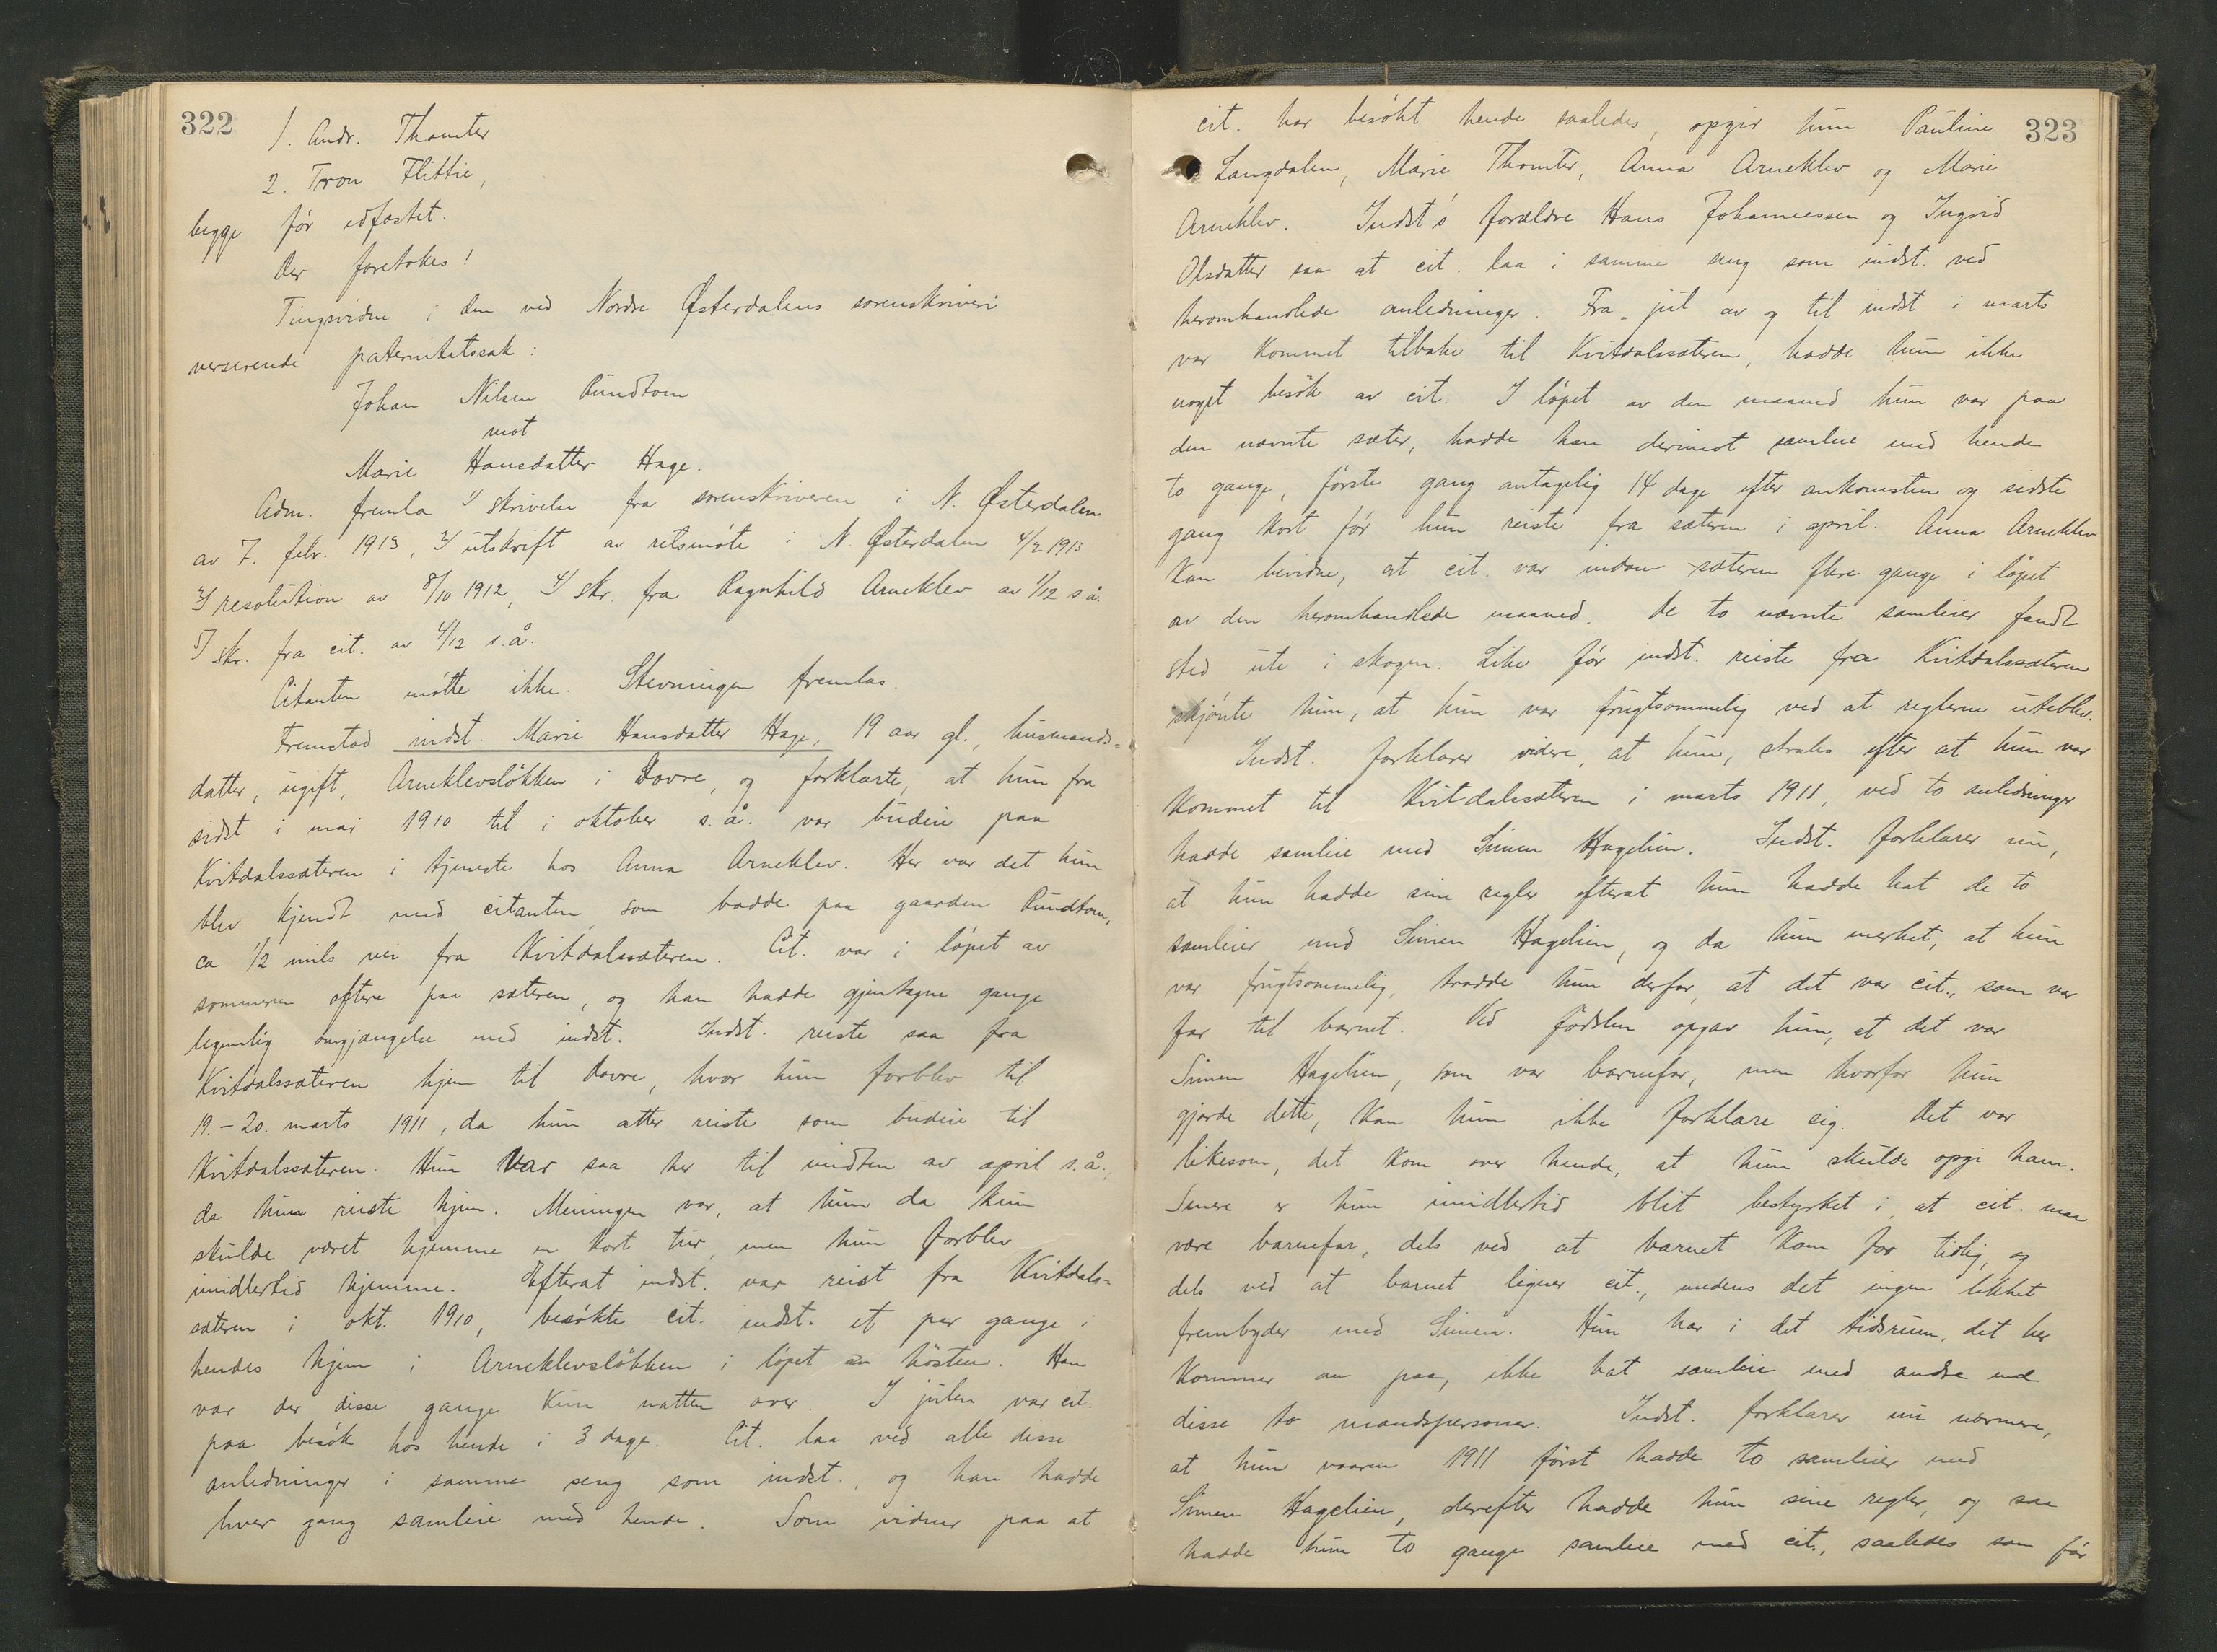 322
1. Andr. Thomter
2. Tron Flittie,
begge før edfæstet.
Der foretokes!
Tingsvidne i den ved Nordre Østerdalens sorenskriveri
verserende paternitetssak:
Johan Nilsen Rundtom
mot
Marie Hansdatter Hage.
Adm. fremla 1/ skrivelse fra sorenskriveren i N. Østerdalen
av 7. febr. 1913, 2/ utskrift av retsmøte i N. Østerdalen 4/2 1913
3/ resolution av 8/10 1912, 4/ skr. fra Ragnhild Arneklev av 1/12 s å.
5/ skr. fra cit. av 4/12 s. å.
Citanten møtte ikke. Stevningen fremlas.
Fremstod indst. Marie Hansdatter Hage, 19 aar gl., husmands=
datter, ugift, Arneklevsløkken i Dovre, og forklarte, at hun fra
sidst i mai 1910 til i oktober s. å. var budeie paa
Kvitdalssæteren i tjeneste hos Anna Arneklev. Her var det hun
blev kjendt med citanten, som bodde paa gaarden Rundtom,
ca 1/2 mils vei fra Kvitdalssæteren. Cit. var i løpet av
sommeren oftere paa sæteren, og han hadde gjentagne gange
legemlig omgjængelse med indst. Indst. reiste saa fra
Kvitdalssæteren hjem til Dovre, hvor hun forblev til
19.-20. marts 1911, da hun atter reiste som budeie til
Kvitdalssæteren. Hun var saa her til midten av april s. å.,
da hun reiste hjem. Meningen var, at hun da kun
skulde været hjemme en kort tur, men hun forblev
imidlertid hjemme. Efterat indst. var reist fra Kvitdals=
sæteren i okt. 1910, besøkte cit. indst. et par gange i
hendes hjem i Arneklevsløkken i løpet av høsten. Han
var der disse gange kun natten over. I julen var cit.
paa besøk hos hende i 3 dage. Cit. laa ved alle disse
anledninger i samme seng som indst., og han hadde
hver gang samleie med hende. Som vidner paa at
323
cit. har besøkt hende saaledes, opgir hun Pauline
Langdalen, Marie Thomter, Anna Arneklev og Marie
Arneklev. Indst's forældre Hans Johannessen og Ingrid
Olsdatter saa at cit. laa i samme seng som indst. ved
heromhandlede anledninger. Fra jul av og til indst. i marts
var kommet tilbake til Kvitdalssæteren, hadde hun ikke
noget besøk av cit. I løpet av den maaned hun var paa
den nævnte sæter, hadde han derimot samleie med hende
to gange, første gang antagelig 14 dage efter ankomsten og sidste
gang kort før hun reiste fra sæteren i april. Anna Arneklev
kan bevidne, at cit. var indom sæteren flere gange i løpet
av den heromhandlede maaned. De to nævnte samleier fandt
sted ute i skogen. Like før indst. reiste fra Kvitdalssæteren
skjønte hun, at hun var frugtsommelig ved at reglerne uteblev.
Indst. forklarer videre, at hun, straks efter at hun var
kommet til Kvitdalssæteren i marts 1911, ved to anledninger
hadde samleie med Simen Hagelien. Indst. forklarer nu,
at hun hadde sine regler efterat hun hadde hat de to
samleier med Simen Hagelien, og da hun merket, at hun
var frugtsommelig, trodde hun derfor, at det var cit., som var
far til barnet. Ved fødslen opgav hun, at det var
Simen Hagelien, som var barnefar, men hvorfor hun
gjorde dette, kan hun ikke forklare sig. Det var
likesom, det kom over hende, at hun skulde opgi ham.
Senere er hun imidlertid blit bestyrket i, at cit. maa
være barnefar, dels ved at barnet kom for tidlig, og
dels ved at barnet ligner cit., medens det ingen likhet
frembyder med Simen. Hun har i det tidsrum, det her
kommer an paa, ikke hat samleie med andre end
disse to mandspersoner. Indst. forklarer nu nærmere,
at hun vaaren 1911 først hadde to samleier med
Simen Hagelien, derefter hadde hun sine regler, og saa
hadde hun to gange samleie med cit., saaledes som før